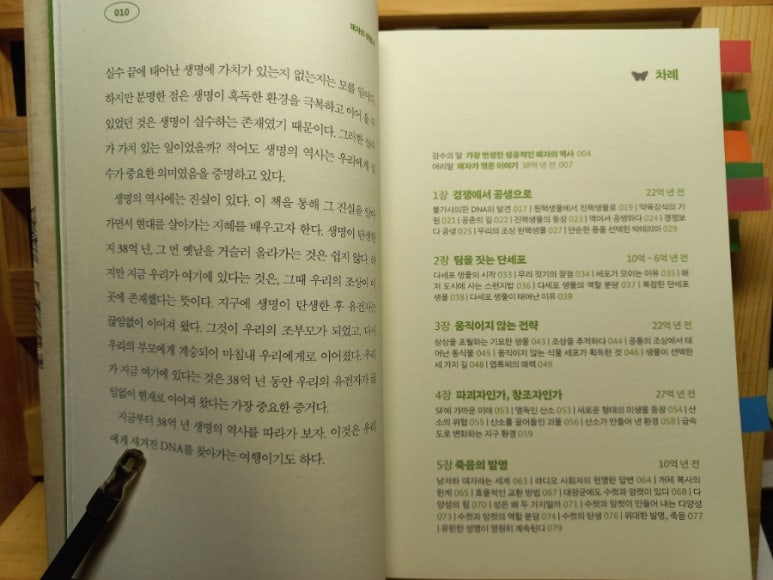 010
실수 끝에 태어난 생명에 가치가 있는지 없는지는 모를 일이다.
하지만 분명한 점은 생명이 혹독한 환경을 극복하고 이어 올 수
있었던 것은 생명이 실수하는 존재였기 때문이다. 그러한 실수
가 가치 있는 일이었을까? 적어도 생명의 역사는 우리에게 실
수가 중요한 의미였음을 증명하고 있다.
생명의 역사에는 진실이 있다. 이 책을 통해 그 진실을 알아
가면서 현대를 살아가는 지혜를 배우고자 한다. 생명이 탄생한
지 38억 년, 그 먼 옛날을 거슬러 올라가는 것은 쉽지 않다. 하
지만 지금 우리가 여기에 있다는 것은, 그때 우리의 조상이
곳에 존재했다는 뜻이다. 지구에 생명이 탄생한 후 유전자는
끊임없이 이어져 왔다. 그것이 우리의 조부모가 되었고, 다시
우리의 부모에게 계승되어 마침내 우리에게로 이어졌다. 우리
가 지금 여기에 있다는 것은 38억 년 동안 우리의 유전자가 끊
임없이 현재로 이어져 왔다는 가장 중요한 증거다.
지금부터 38억 년 생명의 역사를 따라가 보자. 이것은 우리
에게 새겨진 DNA를 찾아가는 여행이기도 하다.
차례
감수의 말 가장 번성한 성공적인 패자의 역사 004
머리말 패자가 엮은 이야기 38억 년 전 007
1장 경쟁에서 공생으로 22억 년 전
불가사의한 DNA의 발견 017 | 원핵생물에서 진핵생물로 019 | 약육강식의 기
원 021 | 공존의 길 022 | 진핵생물의 등장 023 | 먹어서 공생하다 024 | 경쟁보
다 공생 025 | 우리의 조상 원핵생물 027 | 단순한 몸을 선택한 박테리아 028
2장 팀을 짓는 단세포 10억 ~ 6억 년 전
다세포 생물의 시작 033 | 무리 짓기의 장점 034 | 세포가 모이는 이유 035 | 해
저 도시에 사는 스펀지밥 036 | 다세포 생물의 역할 분담 037 | 복잡한 단세포
생물 038 | 다세포 생물이 태어난 이유 039
3장 움직이지 않는 전략 22억 년 전
상상을 초월하는 기묘한 생물 043 | 조상을 추적하다 044 | 공통의 조상에서 태
어난 동식물 045 | 움직이지 않는 식물 세포가 획득한 것 046 | 생물이 선택한
세 가지 길 048 | 엽록체의 매력 049
4장 파괴자인가, 창조자인가 27억 년 전
SF에 가까운 미래 053 | 맹독인 산소 053 | 새로운 형태의 미생물 등장 054 | 산
소의 위협 055 | 산소를 끌어들인 괴물 056 | 산소가 만들어 낸 환경 058 | 급속
도로 변화하는 지구 환경 059
5장 죽음의 발명 10억 년 전
남자와 여자라는 세계 063 | 라디오 사회자의 현명한 답변 064 | 개체 복사의
한계 065 | 효율적인 교환 방법 067 | 대장균에도 수컷과 암컷이 있다 068 | 다
양성의 힘 070 | 성은 왜 두 가지일까 071 | 수컷과 암컷이 만들어 내는 다양성
073 | 수컷과 암컷의 역할 분담 074 | 수컷의 탄생 076 | 위대한 발명, 죽음 077
| 유한한 생명이 영원히 계속된다 079